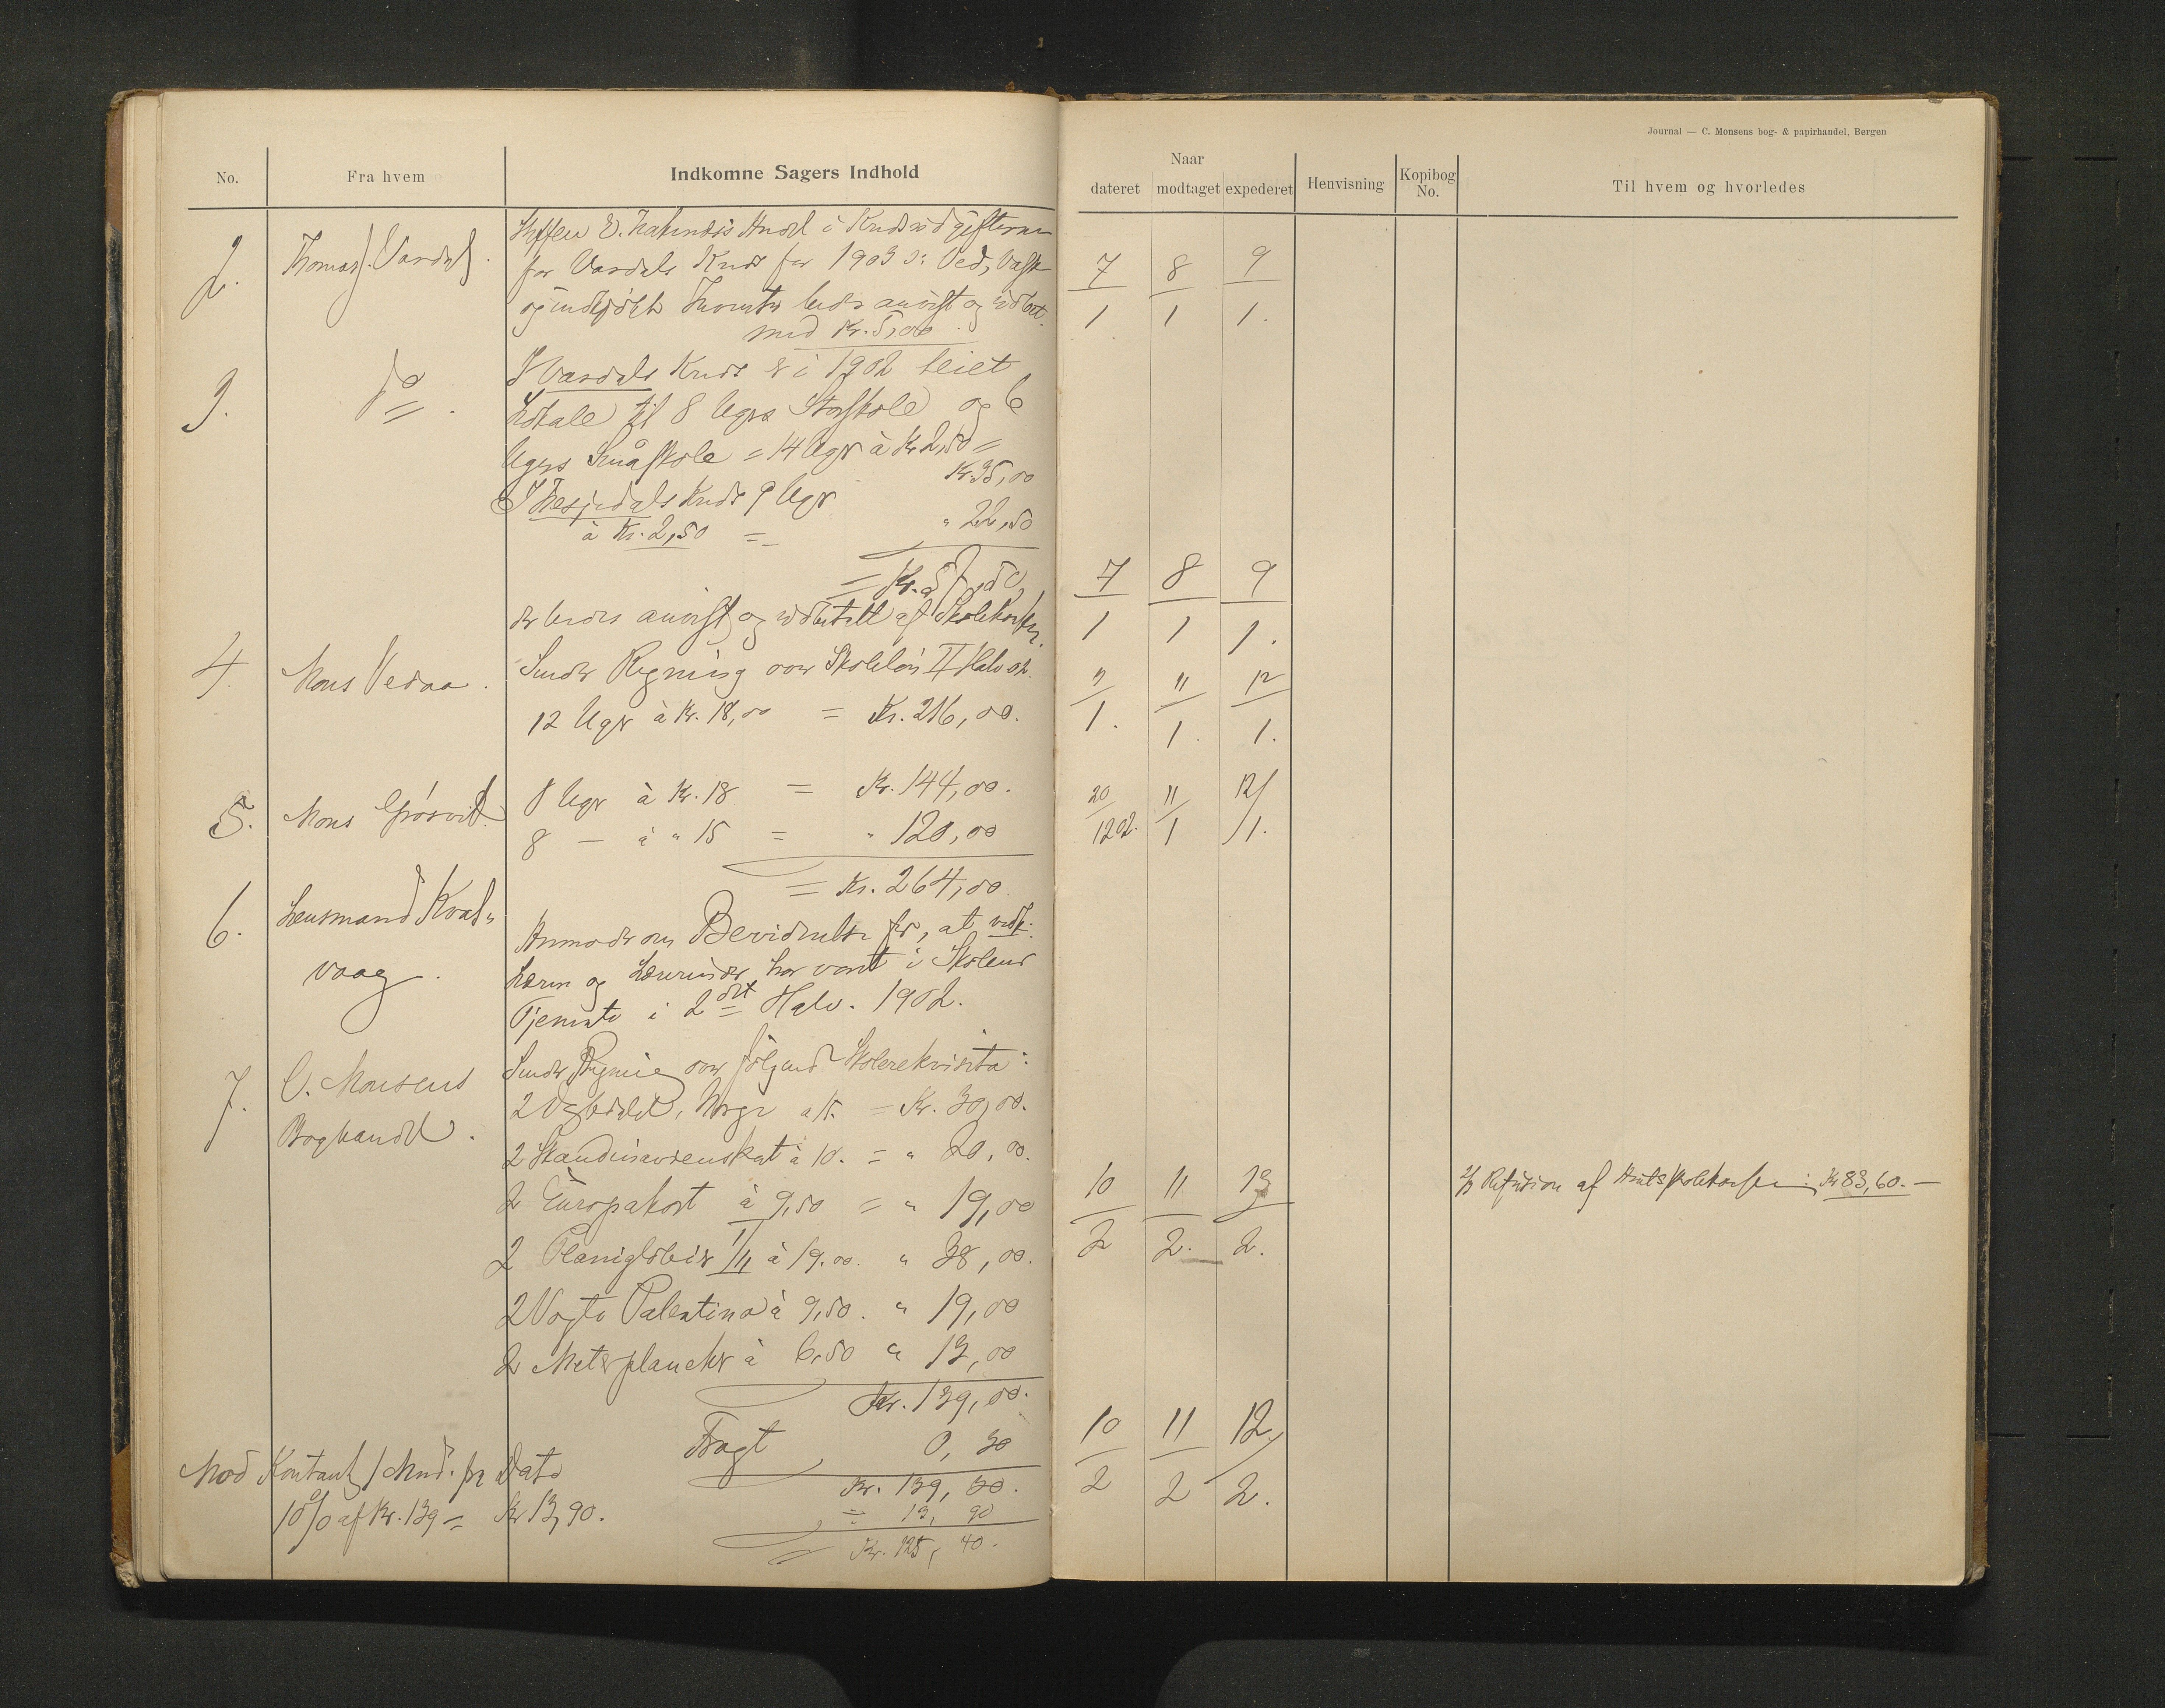 Journal — C. Monsens bog- & papirhandel, Bergen
No. Fra hvem Indkomne Sagers Indhold
Naar
dateret modtaget expederet Henvisning Kopibog No. Til hvem og hvorledes
2. Thomas J. Vasdal.
i Kredsudgifterne
for Vasdals Kreds for 1903 o: Ved, Vask
og bedes anvist og udbet.
med Kr. 5,00.
7/1 8/1 9/1.
3. do.
I Vasdals Kreds er i 1902 leiet
Lokale til 8 Ugers Storskole og 6
Ugers Småskole = 14 Uger à Kr 2,50 =
Kr. 35,00
I Hesjedals Kreds 9 Uger
à Kr. 2,50 = " 22,50
= Kr. 57,50,
der bedes anvist og udbetalt af Skolekassen.
7/1 8/1 9/1.
4. Mons Vedaa.
Sender Regning over Skoleløn II Halv 02.
12 Uger à Kr. 18,00 = Kr. 216,00.
9/1. 11/1. 12/1.
5. Mons Grøsvik.
8 Uger à Kr. 18 = Kr. 144,00.
8 — à " 15 = " 120,00
= Kr. 264,00.
20/12 02. 11/1 12/1.
6. Lensmand Kvalvaag.
Anmoder om Bevidnelse for, at vedk.
Lærere og Lærerinder har vært i Skolens
Tjeneste i 2det Halv. 1902.
7. C. Monsens
Boghandel.
Sender Regning over følgende Skolerekvisita:
2 Norge à 15. = Kr. 30,00.
2 Skandinavienskart à 10. = " 20,00.
2 Europakart à 9,50 = " 19,00
2 Planiglober I/II à 19.00. " 38,00.
2 Palestina à 9,50. " 19,00
2 Meterplancher à 6,50 " 13,00
Kr. 139,00.
10/2 11/2. 13/2.
Refusion af Amtsskolekassen: Kr 83,60.—
Fragt 0,30
Kr. 139,30.
= 13,90
Kr. 125,40.
Mod Kontant 1 Mnd. fra Dato
10% af Kr. 139 = Kr 13,90.
10/2 11/2 12/2.